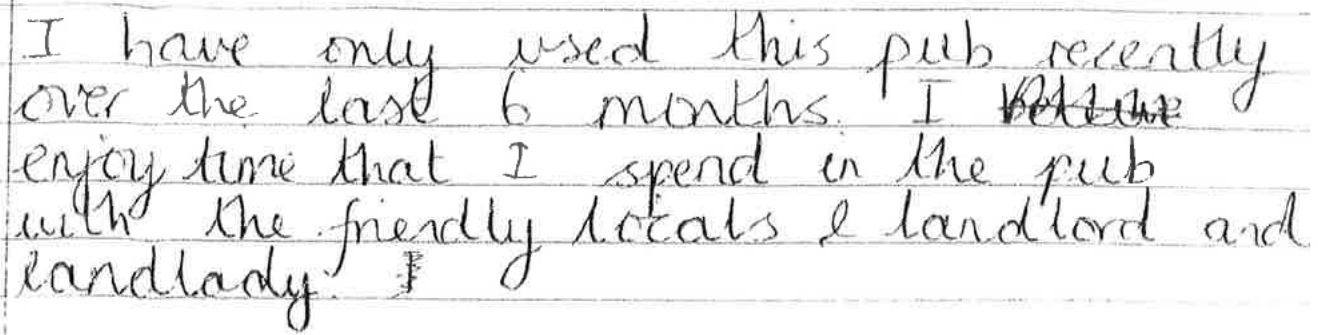 I have only used this pub recently
over the last 6 months. I
enjoy time that I spend in the pub
with the friendly locals & landlord and
landlady.